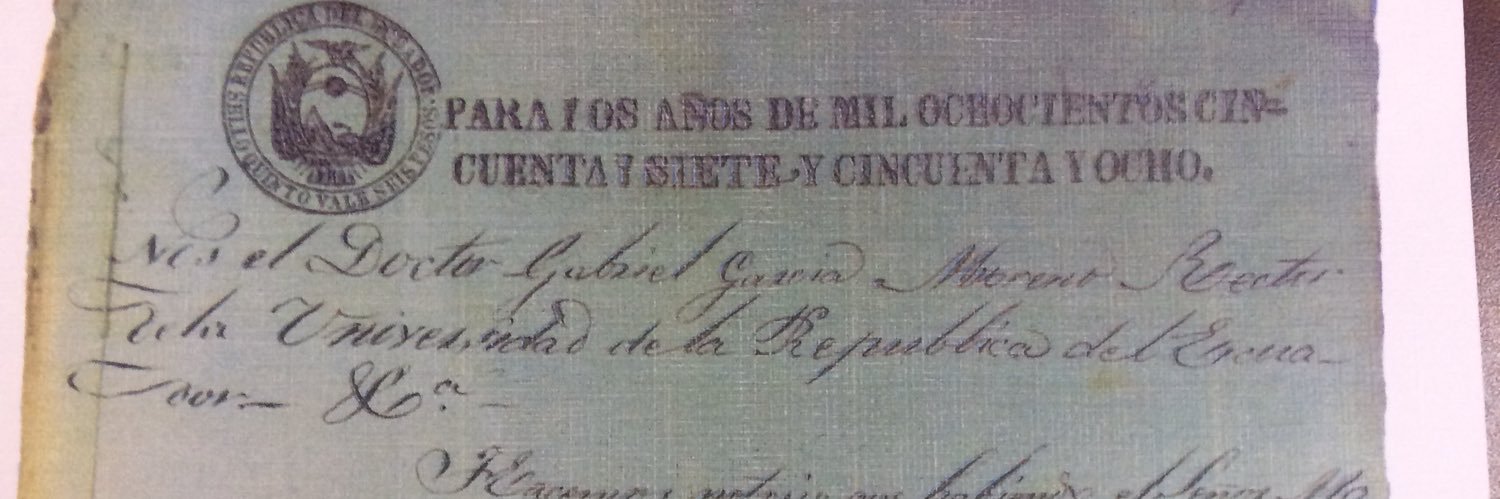 REPUBLICA DEL ECUADOR. SELLO QUINTO VALE SEIS PESOS.
PARA LOS AÑOS DE MIL OCHOCIENTOS CIN=
CUENTA I SIETE Y CINCUENTA Y OCHO.
Nos el Doctor Gabriel Garcia Moreno Rector
de la Universidad de la Republica del Ecua-
dor &Cª
Hacemos notorio que habiendo el Señor